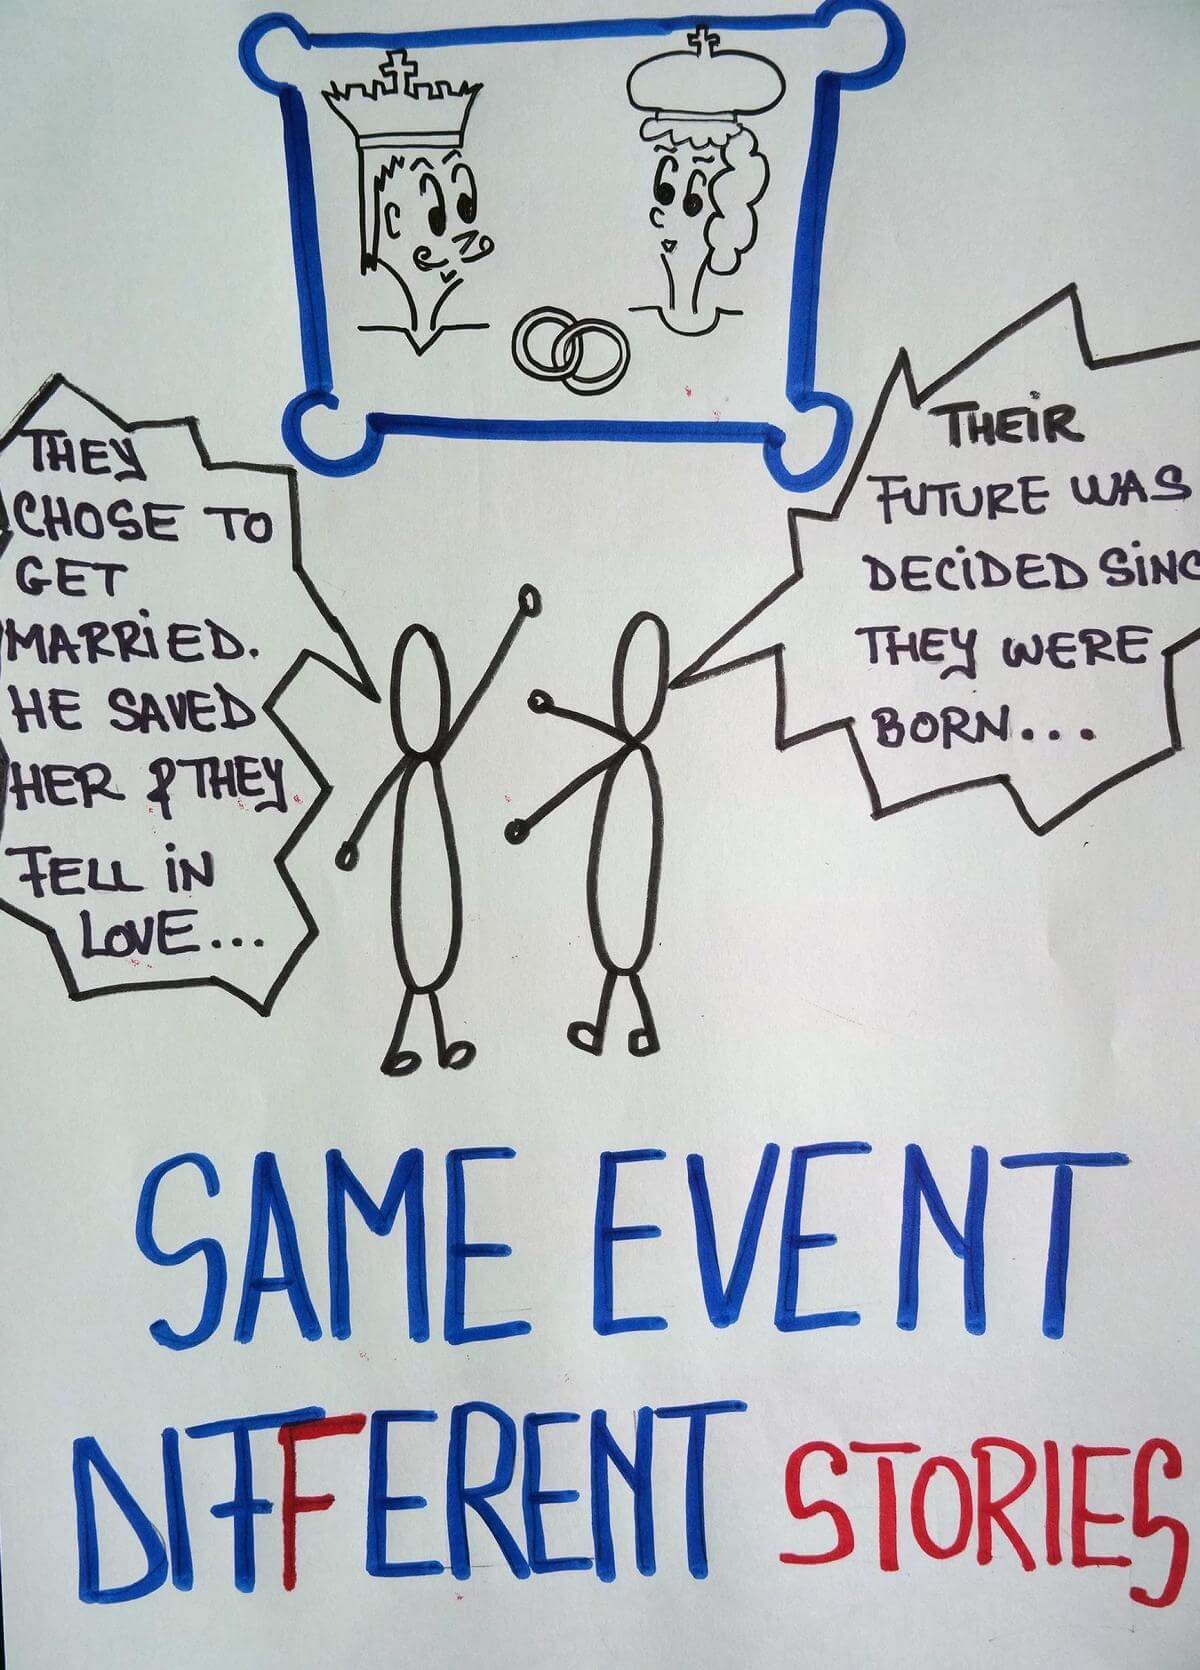 THEY
CHOSE TO
GET
MARRiED.
HE SAVED
HER & THEY
FELL iN
LOVE...
THEiR
FUTURE WAS
DECiDED SiNC
THEY WERE
BORN...
SAME EVENT
DIFFERENT STORIES